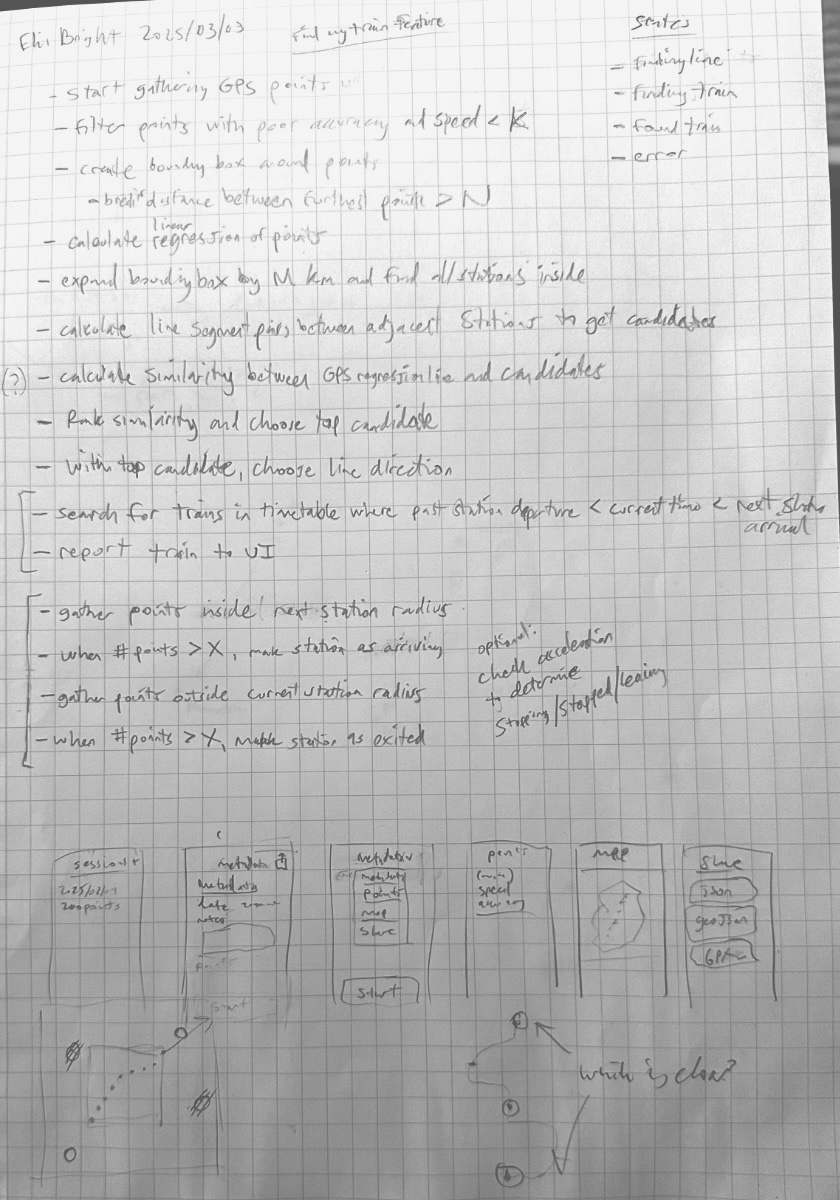 Bright 2025/03/03
Find my train feature
States
- finding line
- finding train
- found train
- error
- start gathering GPS points
- filter points with poor accuracy and speed < K
- create bounding box around points
- distance between furthest points > N
linear
- calculate regression of points
- expand bounding box by M km and find all stations inside
- calculate line segment pairs between adjacent stations to get candidates
(?) - calculate similarity between GPS regression line and candidates
- Rank similarity and choose top candidate
- With top candidate, choose line direction
- search for trains in timetable where past station departure < current time < next station
arrival
- report train to UI
- gather points inside next station radius
- when # points > X, mark station as arriving
- gather points outside current station radius
- when # points > X, mark station as exited
optional:
check acceleration
to determine
stopping/stopped/leaving
sessions +
200 points
metadata
metadata
date
notes
points
start
metadata
metadata
points
map
share
start
points
speed
accuracy
map
share
json
geojson
which is close?